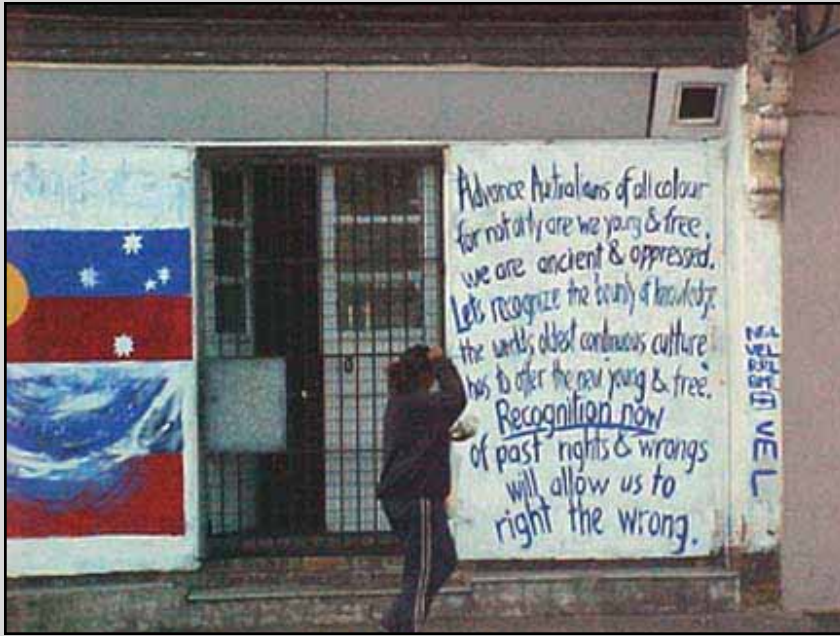 Advance Autralians of all colour
for not only are we young & free,
we are ancient & oppressed.
Lets recognize the bounty of knowledge
the worlds oldest continuous culture
has to offer the new young & free.
Recognition now
of past rights & wrongs
will allow us to
right the wrong.
VEL